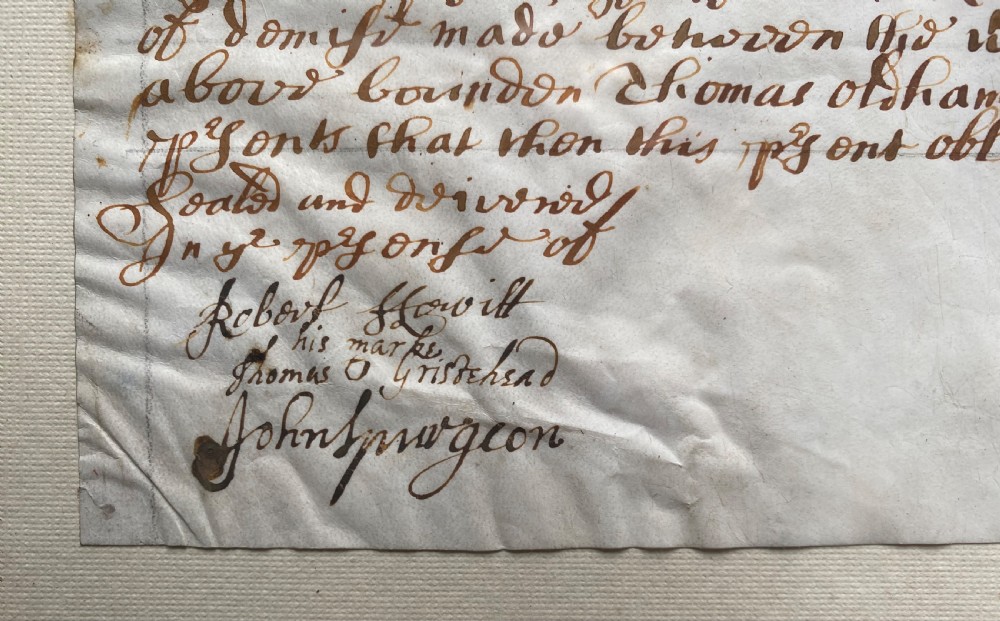 of demise made betweene the
above bounden Thomas Oldham
prsents that then this prsent obl
Sealed and delivered
In yr prsense of
Robert Hewitt
his marke
Thomas O Gristehead
John Spurgeon